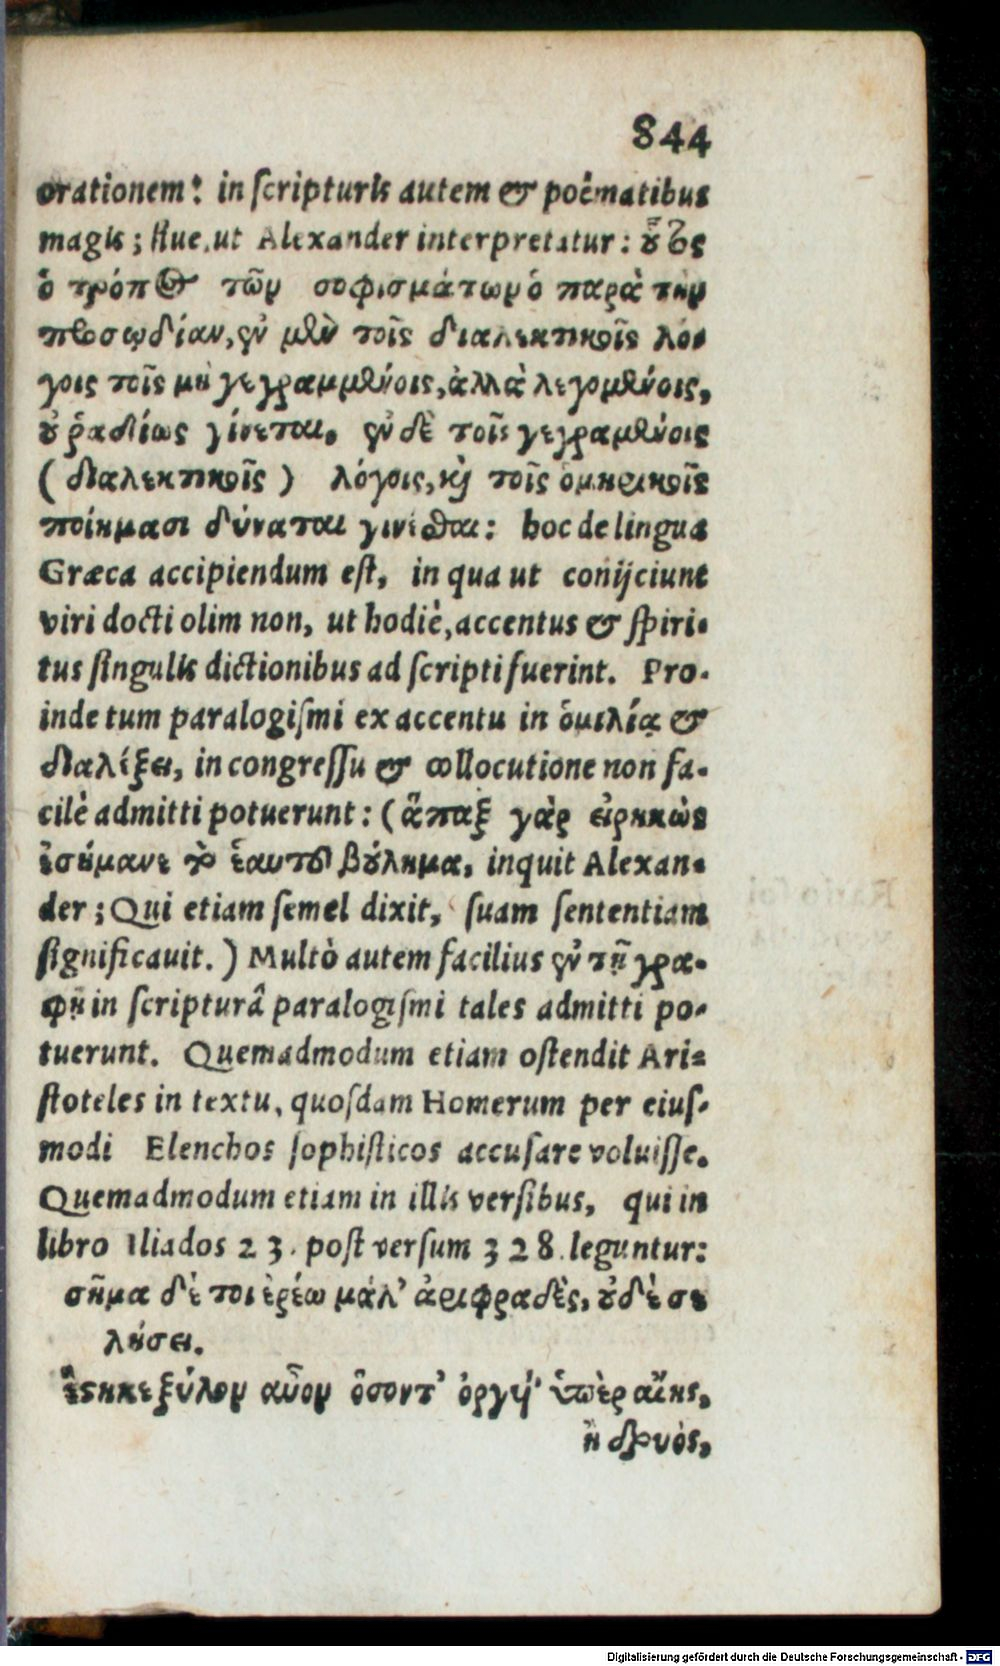 844
orationem: in scripturis autem & poëmatibus
magis; sive, ut Alexander interpretatur: οὗτος
ὁ τρόπος τῶν σοφισμάτων ὁ παρὰ τὴν
προσῳδίαν, ἐν μὲν τοῖς διαλεκτικοῖς λό-
γοις τοῖς μὴ γεγραμμένοις, ἀλλὰ λεγομένοις,
οὐ ῥαδίως γίνεται. ἐν δὲ τοῖς γεγραμένοις
(διαλεκτικοῖς) λόγοις, καὶ τοῖς ὁμηρικοῖς
ποίημασι δύναται γινέσθαι: hoc de lingua
Græca accipiendum est, in qua ut conijciunt
viri docti olim non, ut hodiè, accentus & spiri-
tus singulis dictionibus ad scripti fuerint. Pro-
inde tum paralogismi ex accentu in ὁμιλίᾳ &
διαλέξει, in congressu & collocutione non fa-
cilè admitti potuerunt: (ἅπαξ γὰρ εἰρηκὼς
ἐσήμανε τὸ ἑαυτοῦ βούλημα, inquit Alexan-
der; Qui etiam semel dixit, suam sententiam
significavit.) Multò autem facilius ἐν τῇ γρα-
φῇ in scripturâ paralogismi tales admitti po-
tuerunt. Quemadmodum etiam ostendit Ari-
stoteles in textu, quosdam Homerum per eius-
modi Elenchos sophisticos accusare voluisse.
Quemadmodum etiam in illis versibus, qui in
libro Iliados 23. post versum 328. leguntur:
σῆμα δέ τοι ἐρέω μάλ' ἀριφραδὲς, οὐδέ σε
λήσει.
ἕστηκε ξύλον αὖον ὅσον τ' ὄργυι' ὑπὲρ αἴης,
ἢ δρυὸς,
Digitalisierung gefördert durch die Deutsche Forschungsgemeinschaft - DFG